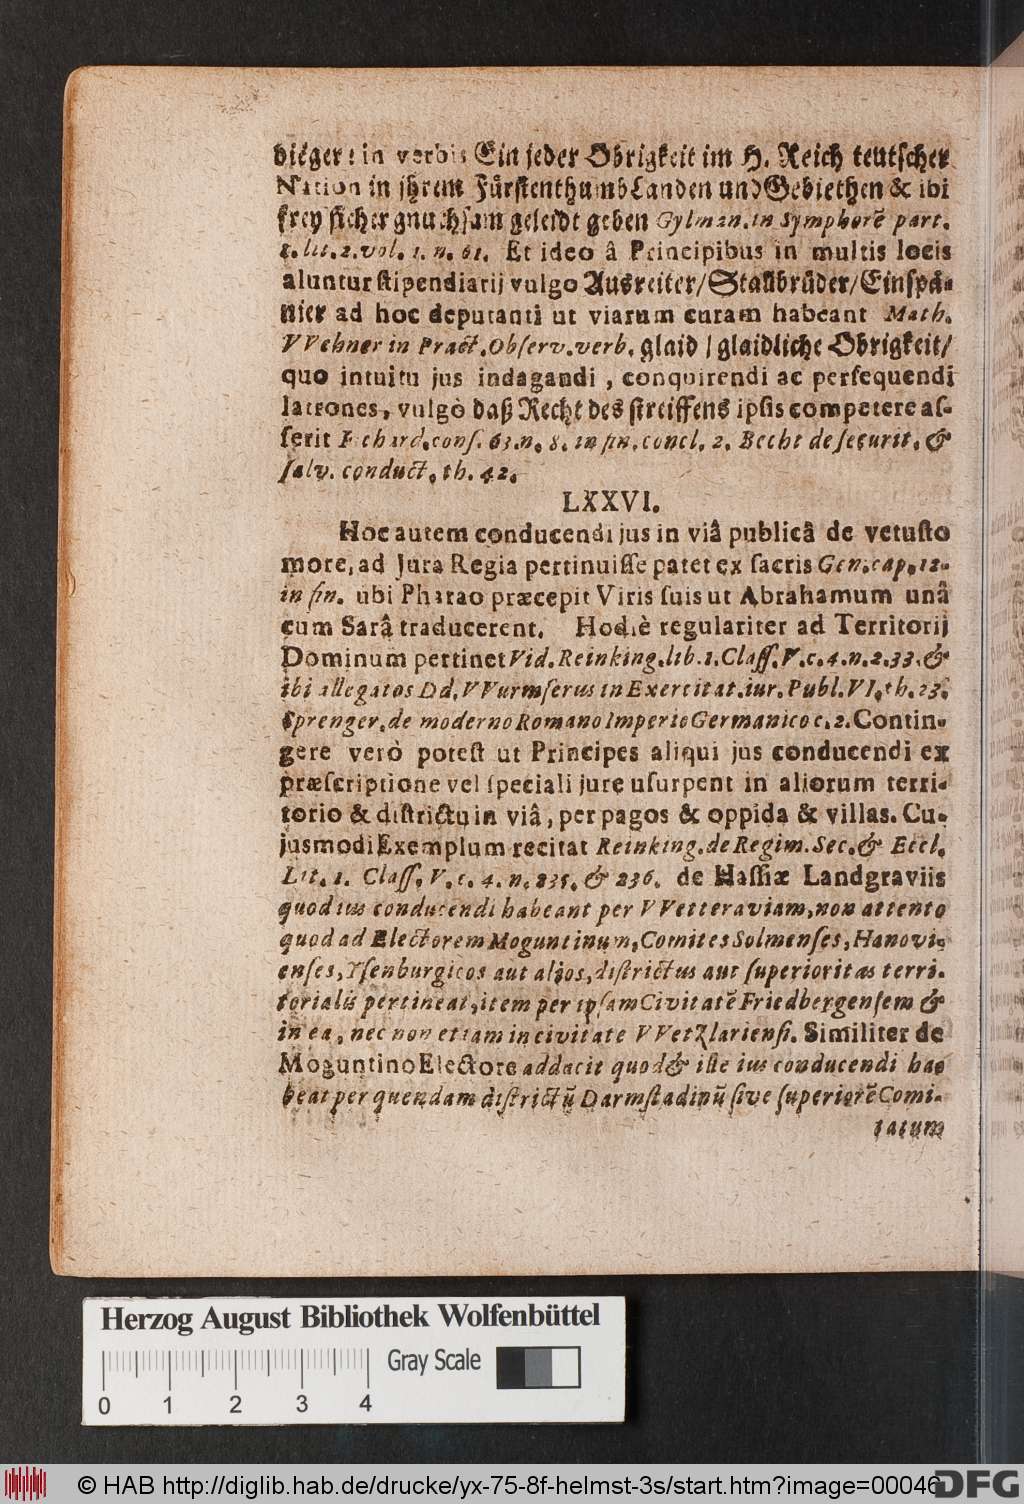 dieger: in verbis Ein jeder Obrigkeit im H. Reich teutscher
Nation in jhrem FürstenthumbLanden und Gebiethen & ibi
frey sicher gnuchsam geleidt geben Gylman. in Symphorē part.
1. lit. 2. vol. 1. n. 61. Et ideo â Principibus in multis locis
aluntur ſtipendiarij vulgo Ausreiter/Stallbrüder/Einspä-
nier ad hoc deputanti ut viarum curam habeant Math.
VVehner in Pract. Obſerv. verb. glaid / glaidliche Obrigkeit/
quo intuitu jus indagandi, conquirendi ac perſequendi
latrones, vulgò daß Recht des streiffens ipſis competere aſ-
ſerit Richard. conſ. 63. n. 8. in fin. concl. 2. Becht de ſecurit. &
ſalv. conduct. th. 42.
LXXVI.
Hoc autem conducendi jus in viâ publicâ de vetuſto
more, ad Jura Regia pertinuiſſe patet ex ſacris Gen. cap. 12.
in fin. ubi Pharao præcepit Viris ſuis ut Abrahamum unâ
cum Sarâ traducerent. Hodiè regulariter ad Territorij
Dominum pertinet Vid. Reinking. lib. 1. Claſſ. V. c. 4. n. 2. 33. &
ibi allegatos Dd. VVurmſerus in Exercitat. iur. Publ. VI. th. 23.
Sprenger. de moderno Romano Imperio Germanico c. 2. Contin-
gere verò poteſt ut Principes aliqui jus conducendi ex
præſcriptione vel ſpeciali jure uſurpent in aliorum terri-
torio & diſtrictu in viâ, per pagos & oppida & villas. Cu-
jusmodi Exemplum recitat Reinking. de Regim. Sec. & Eccl.
Lit. 1. Claſſ. V. c. 4. n. 235. & 236. de Haſſiæ Landgraviis
quod ius conducendi habeant per VVetteraviam, non attento
quod ad Electorem Moguntinum, Comites Solmenſes, Hanovi-
enſes, Yſenburgicos aut alios, diſtrictus aut ſuperioritas terri-
torialis pertineat, item per ipſam Civitatē Friedbergenſem &
in ea, nec non etiam in civitate VVetzlarienſi. Similiter de
Moguntino Electore adducit quod & iſte ius conducendi ha-
beat per quendam diſtrictū Darmſtadinū ſive ſuperiorē Comi-
tatum
Herzog August Bibliothek Wolfenbüttel
Gray Scale
0 1 2 3 4
© HAB http://diglib.hab.de/drucke/yx-75-8f-helmst-3s/start.htm?image=00046
DFG